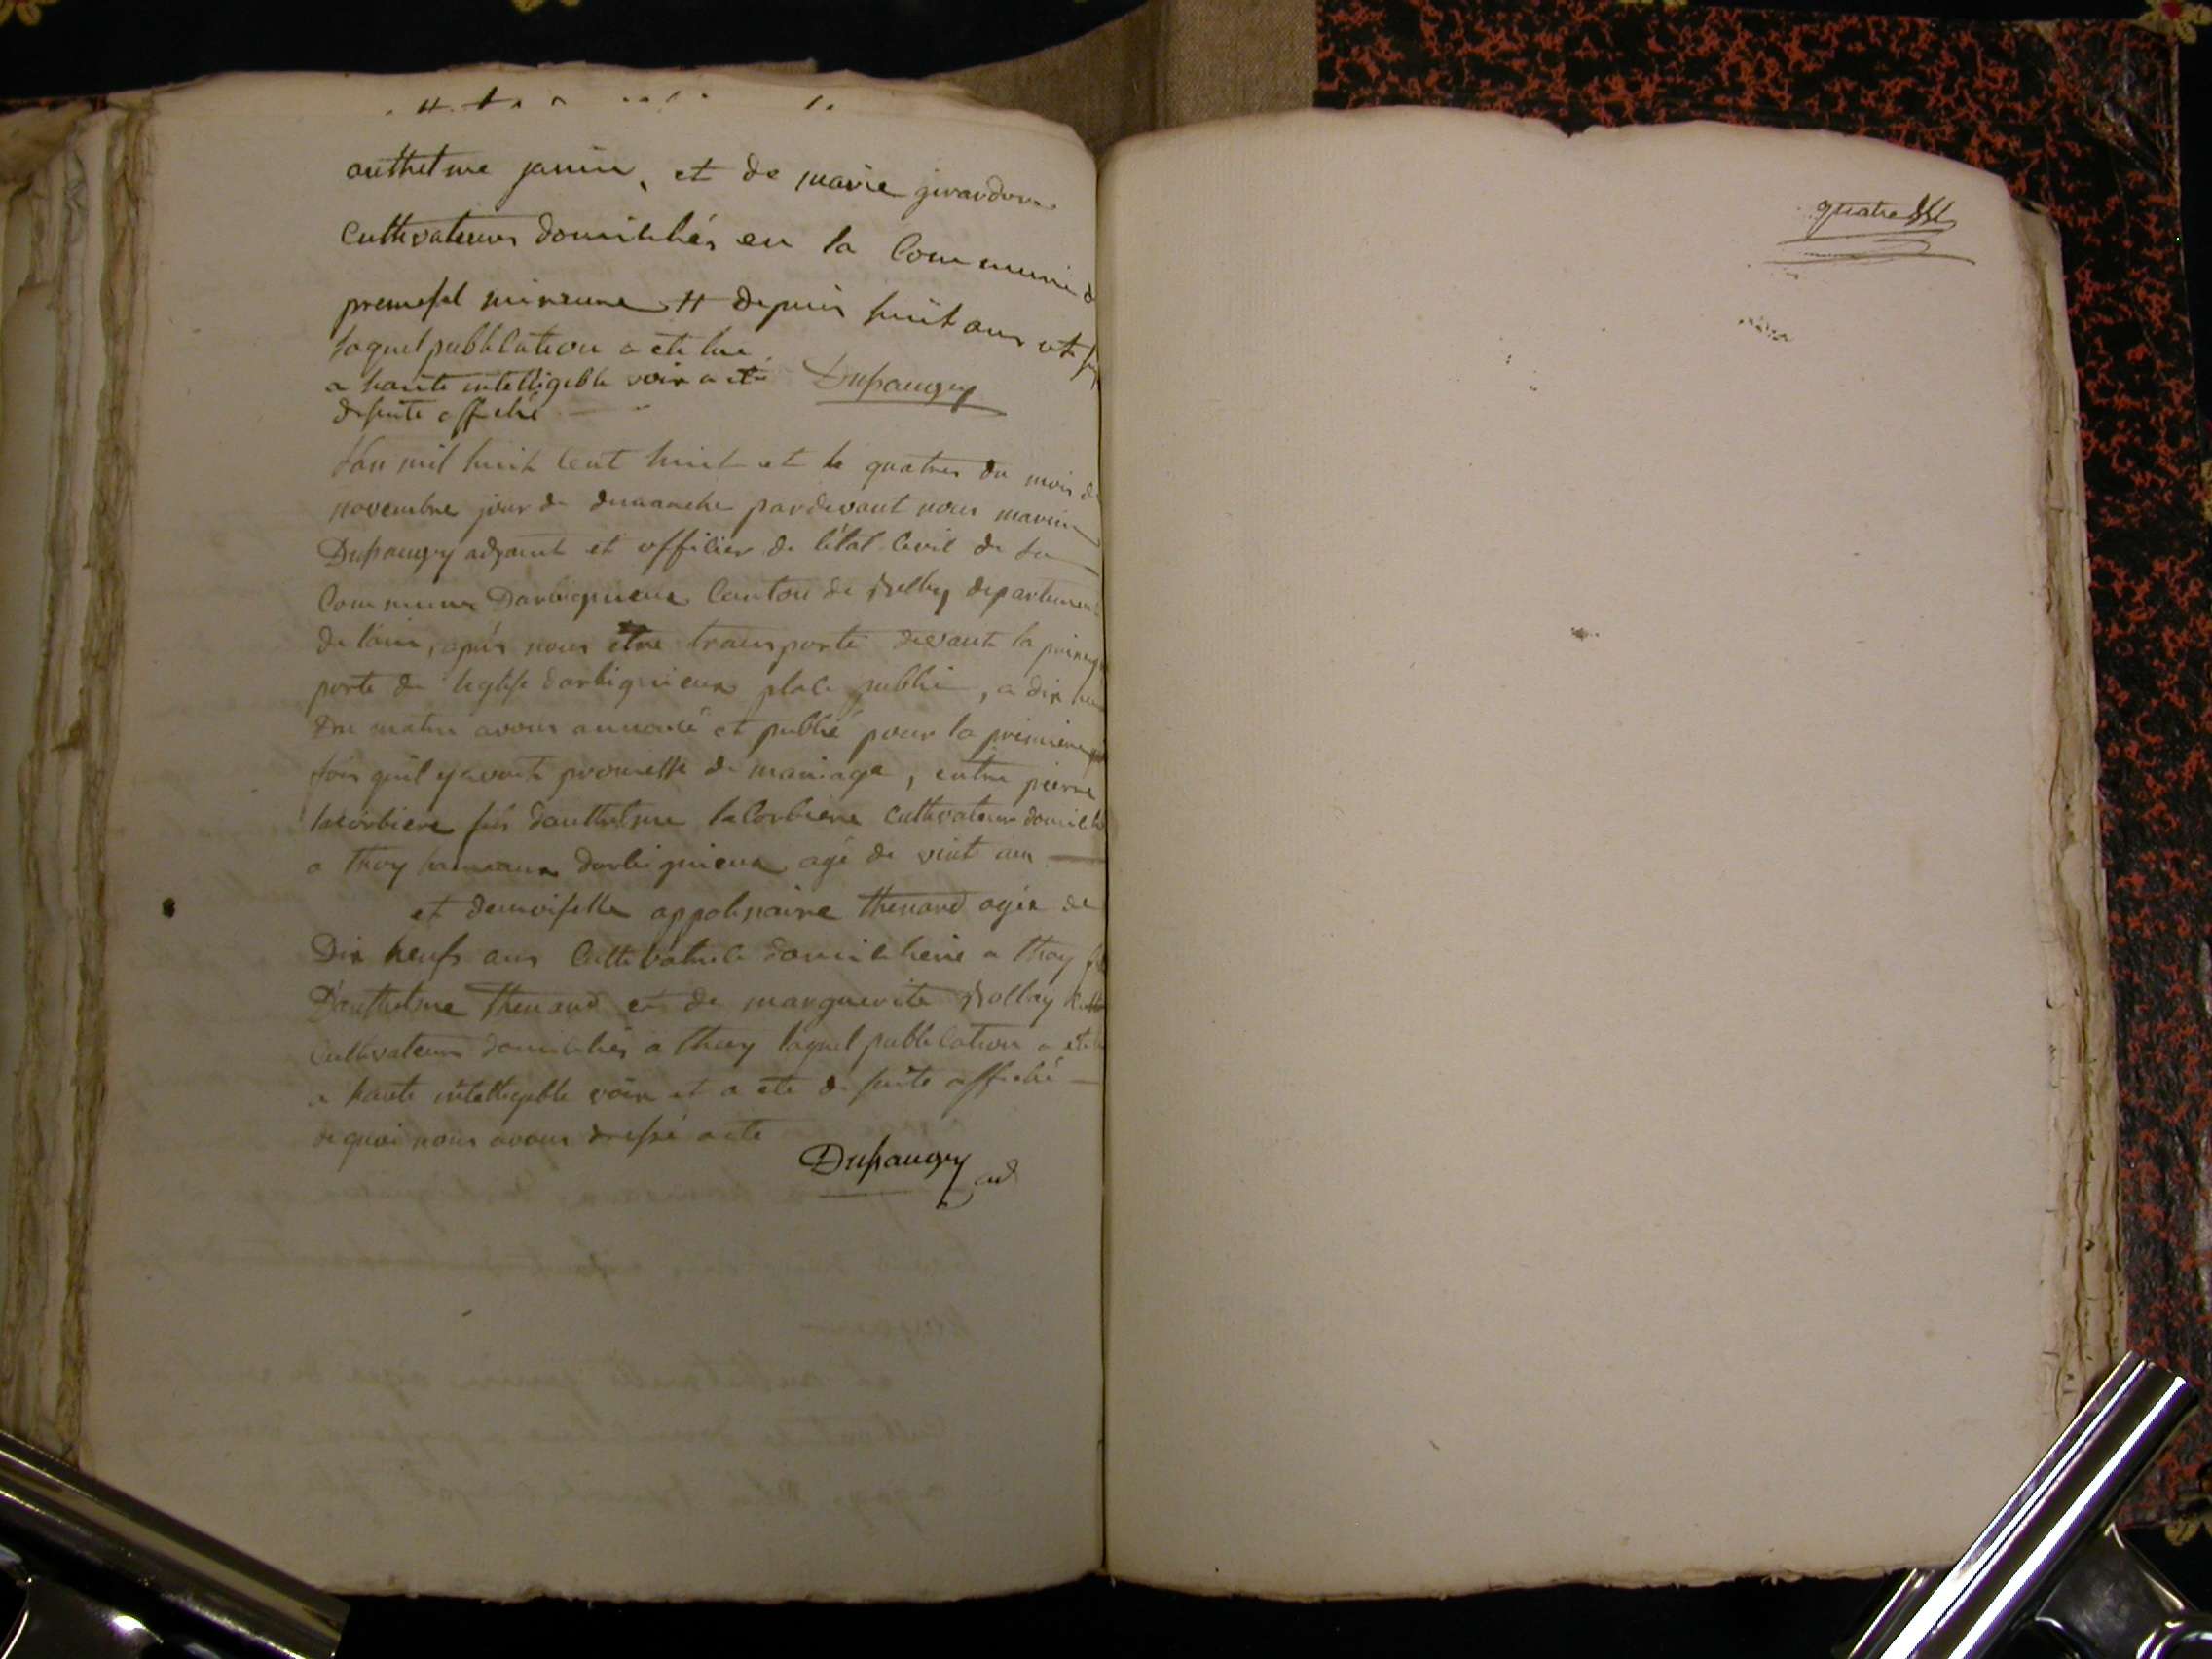 anthelme janin, et de marie girardon
Cultivateurs domiciliés en la Commune d
premesel depuis huit ans et
laquel publication a ete lue
a haute intelligible voix a été Dupaugey
desuite affiché
Lan mil huit Cent huit et le quatres du mois de
novembre jour de dimanche pardevant nous
Dupaugey adjoint et officier de l'état Civil de la
Commune Darbignieux Canton de Belley departement
de l'ain, après nous être transporté devant la
porte de leglise darbignieux place public, a dix
Du matin avons annoncé et publié pour la premiere
fois quil yavoit promesse de mariage, entre pierre
laCorbiere fils danthelme laCorbiere Cultivateur
a thoy hameaux darbignieux agé de vint ans
et demoiselle appolinaire thenard agée de
Dix neufs ans Cultivatrice domicilieé a thoy
D'anthelme thenard et de marguerite Rollay
Cultivateurs domiciliés a thoy laquel publication a ete
a haute intelligible voix et a ete de suite affiché
de quoi nous avons dressé acte
Dupaugey ad
quatre